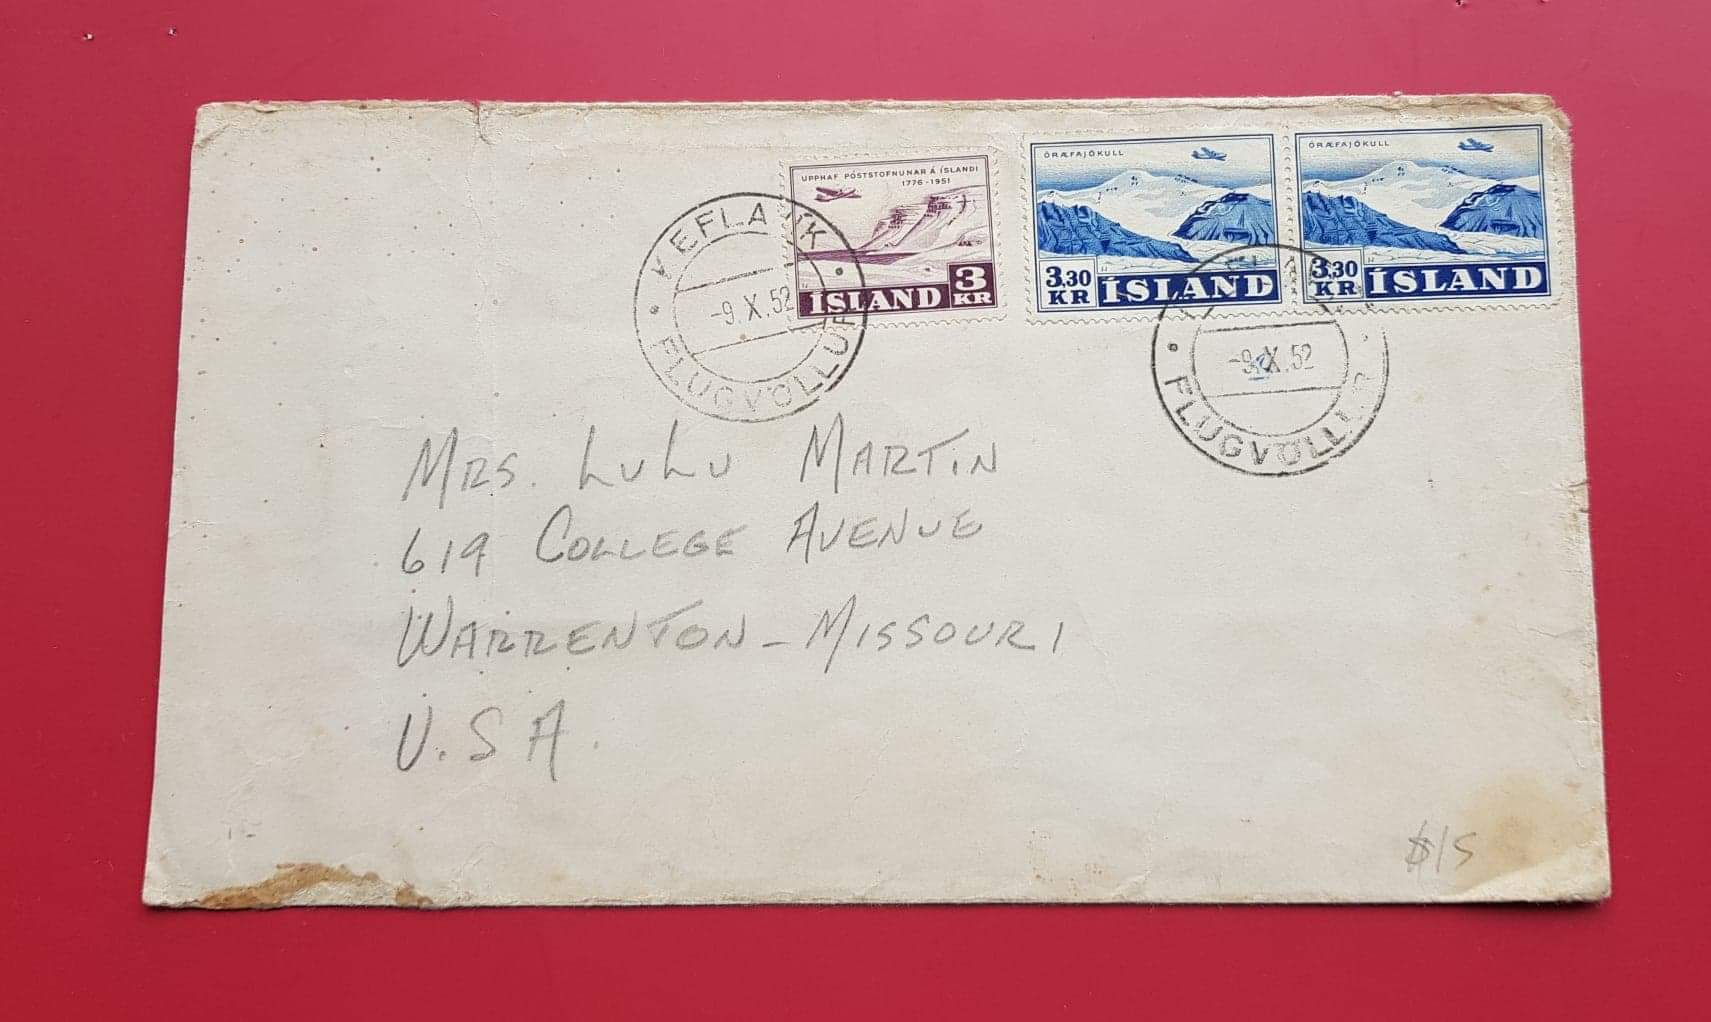 UPPHAF PÓSTSTOFNUNAR Á ÍSLANDI
1776-1951
3
KR
ÍSLAND
ÖRÆFAJÖKULL
3,30
KR
ÍSLAND
ÖRÆFAJÖKULL
3,30
KR
ÍSLAND
KEFLAVÍK
-9.X.52
FLUGVÖLLUR
-9.X.52
FLUGVÖLLUR
MRS. LULU MARTIN
619 COLLEGE AVENUE
WARRENTON - MISSOURI
U.S.A.
$15